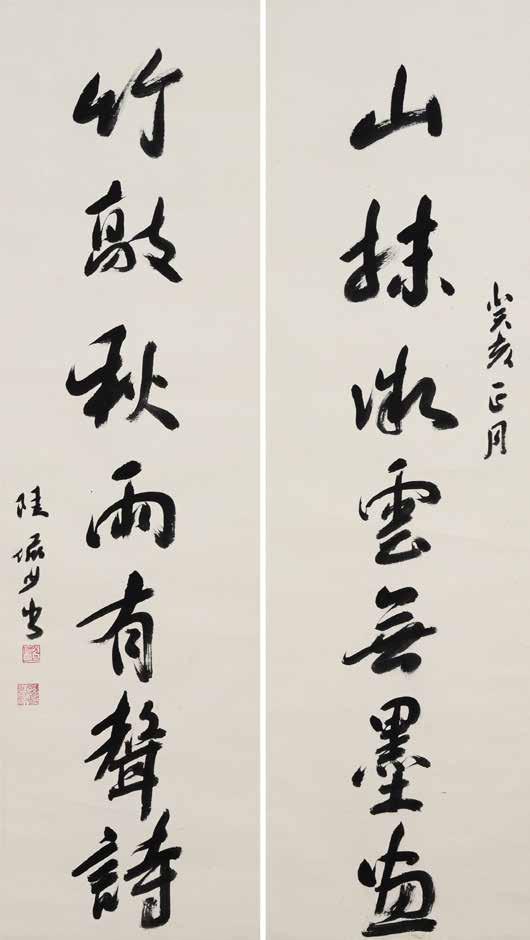 癸亥正月
山抹微雲無墨畫
竹敲秋雨有聲詩
陸儼少書